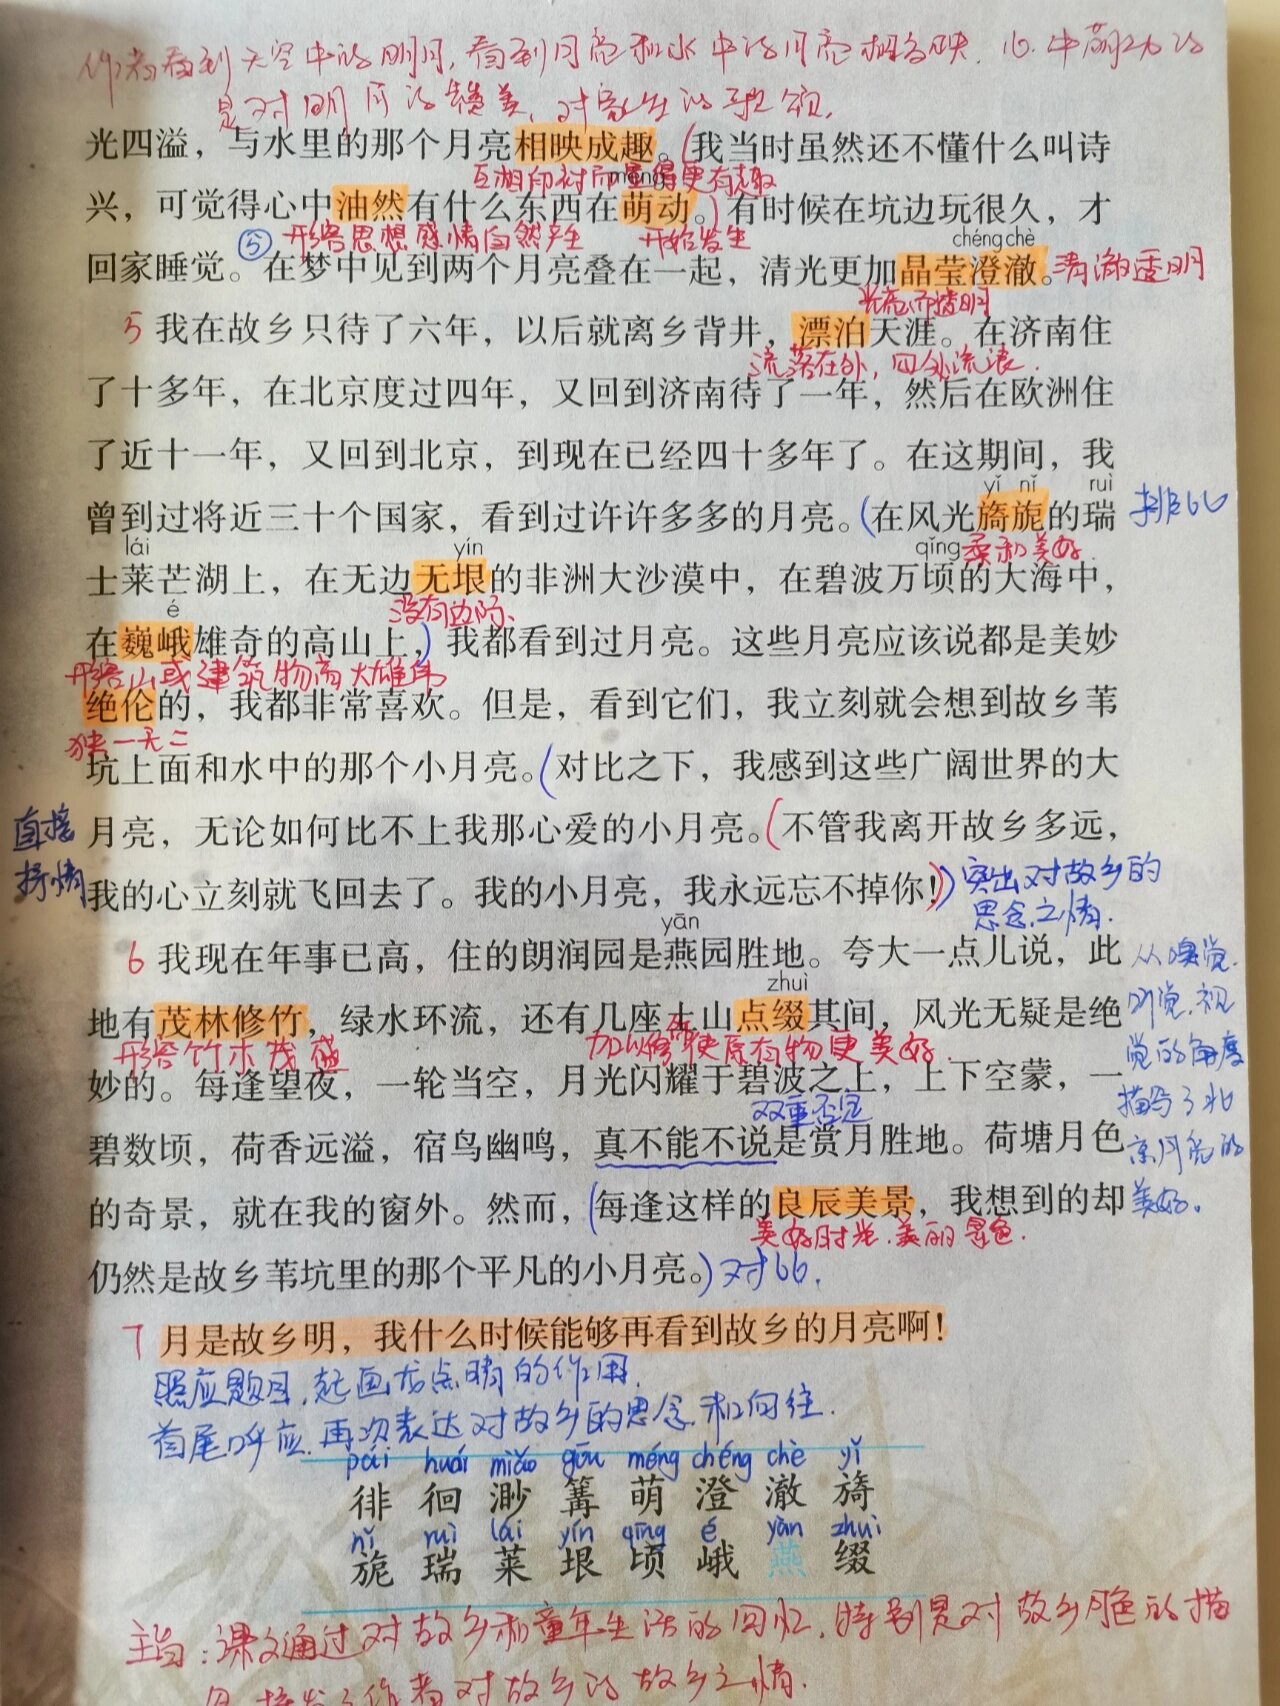 作者看到天空中的明月,看到月亮和水中的月亮相互映,心中萌动的
是对明月的赞美、对家生的
光四溢，与水里的那个月亮相映成趣。(我当时虽然还不懂什么叫诗
互相映衬而显得更有趣
méng
兴，可觉得心中油然有什么东西在萌动。)有时候在坑边玩很久，才
⑤ 形容思想感情自然产生 开始发生
chéng chè
回家睡觉。在梦中见到两个月亮叠在一起，清光更加晶莹澄澈。清澈透明
光亮而透明
5 我在故乡只待了六年，以后就离乡背井，漂泊天涯。在济南住
流落在外,四外流浪.
了十多年，在北京度过四年，又回到济南待了一年，然后在欧洲住
了近十一年，又回到北京，到现在已经四十多年了。在这期间，我
yǐ nǐ ruì
曾到过将近三十个国家，看到过许许多多的月亮。(在风光旖旎的瑞 排比
lái yín qǐng 柔和美好.
士莱芒湖上，在无边无垠的非洲大沙漠中，在碧波万顷的大海中，
é 没有边际、
在巍峨雄奇的高山上,)我都看到过月亮。这些月亮应该说都是美妙
形容山或建筑物高大雄伟
绝伦的，我都非常喜欢。但是，看到它们，我立刻就会想到故乡苇
独一无二
坑上面和水中的那个小月亮。(对比之下，我感到这些广阔世界的大
直接
抒情
月亮，无论如何比不上我那心爱的小月亮。(不管我离开故乡多远，
我的心立刻就飞回去了。我的小月亮，我永远忘不掉你!))突出对故乡的
思念之情.
yān
6 我现在年事已高，住的朗润园是燕园胜地。夸大一点儿说，此
zhuì
地有茂林修竹，绿水环流，还有几座土山点缀其间，风光无疑是绝
形容竹木茂盛 加以修饰使原有物更美好.
妙的。每逢望夜，一轮当空，月光闪耀于碧波之上，上下空蒙，一
双重否定
碧数顷，荷香远溢，宿鸟幽鸣，真不能不说是赏月胜地。荷塘月色
的奇景，就在我的窗外。然而，(每逢这样的良辰美景，我想到的却
美好时光.美丽景色.
仍然是故乡苇坑里的那个平凡的小月亮。)对比.
从嗅觉.
听觉.视
觉的角度
描写了北
京月亮的
美好.
7 月是故乡明，我什么时候能够再看到故乡的月亮啊!
照应题目,起画龙点睛的作用.
首尾呼应.再次表达对故乡的思念和向往.
pái huái miǎo gōu méng chéng chè yǐ
徘 徊 渺 篝 萌 澄 澈 旖
nǐ ruì lái yín qǐng é yān zhuì
旎 瑞 莱 垠 顷 峨 燕 缀
主旨:课文通过对故乡和童年生活的回忆,特别是对故乡月色的描
写,抒发了作者对故乡的故乡之情.